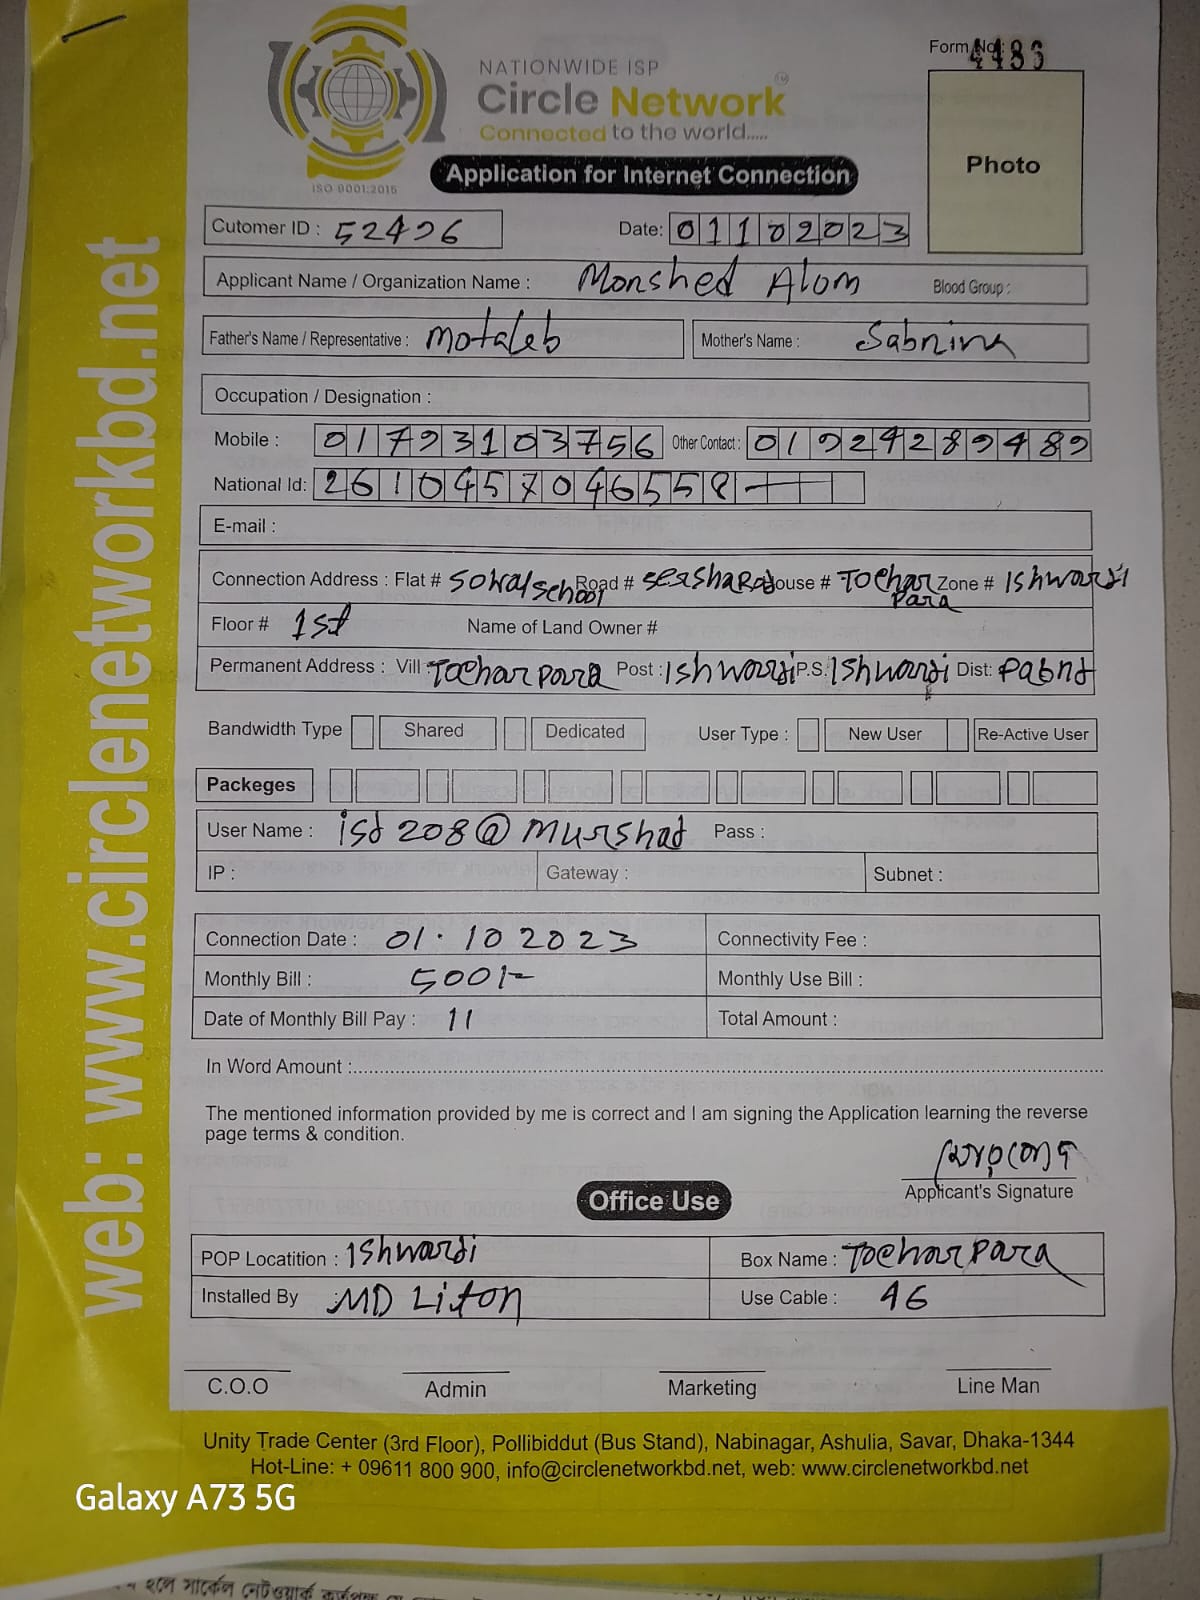 Form No: 4486
NATIONWIDE ISP
Circle Network
TM
Connected to the world.....
ISO 9001:2015
Application for Internet Connection
Photo
Cutomer ID : 52426
Date: 01102023
Applicant Name / Organization Name : Monshed Alom Blood Group :
Father's Name / Representative : motaleb Mother's Name : Sabnina
Occupation / Designation :
Mobile : 01793103756 Other Contact : 01924289489
National Id: 2610457046558
E-mail :
Connection Address : Flat # School Road # House # Tochar para Zone # Ishwardi
Floor # 1st Name of Land Owner #
Permanent Address : Vill : Tochar para Post : Ishwardi P.S. Ishwardi Dist: Pabna
Bandwidth Type Shared Dedicated User Type : New User Re-Active User
Packeges
User Name : isd 208@murshad Pass :
IP : Gateway : Subnet :
Connection Date : 01.10 2023 Connectivity Fee :
Monthly Bill : 500/- Monthly Use Bill :
Date of Monthly Bill Pay : 11 Total Amount :
In Word Amount :
The mentioned information provided by me is correct and I am signing the Application learning the reverse
page terms & condition.
Applicant's Signature
Office Use
POP Locatition : Ishwardi Box Name : Tochar para
Installed By MD Liton Use Cable : 46
C.O.O Admin Marketing Line Man
Unity Trade Center (3rd Floor), Pollibiddut (Bus Stand), Nabinagar, Ashulia, Savar, Dhaka-1344
Hot-Line: + 09611 800 900, info@circlenetworkbd.net, web: www.circlenetworkbd.net
web: www.circlenetworkbd.net
Galaxy A73 5G
হলে সার্কেল নেটওয়ার্ক কর্তৃপক্ষ